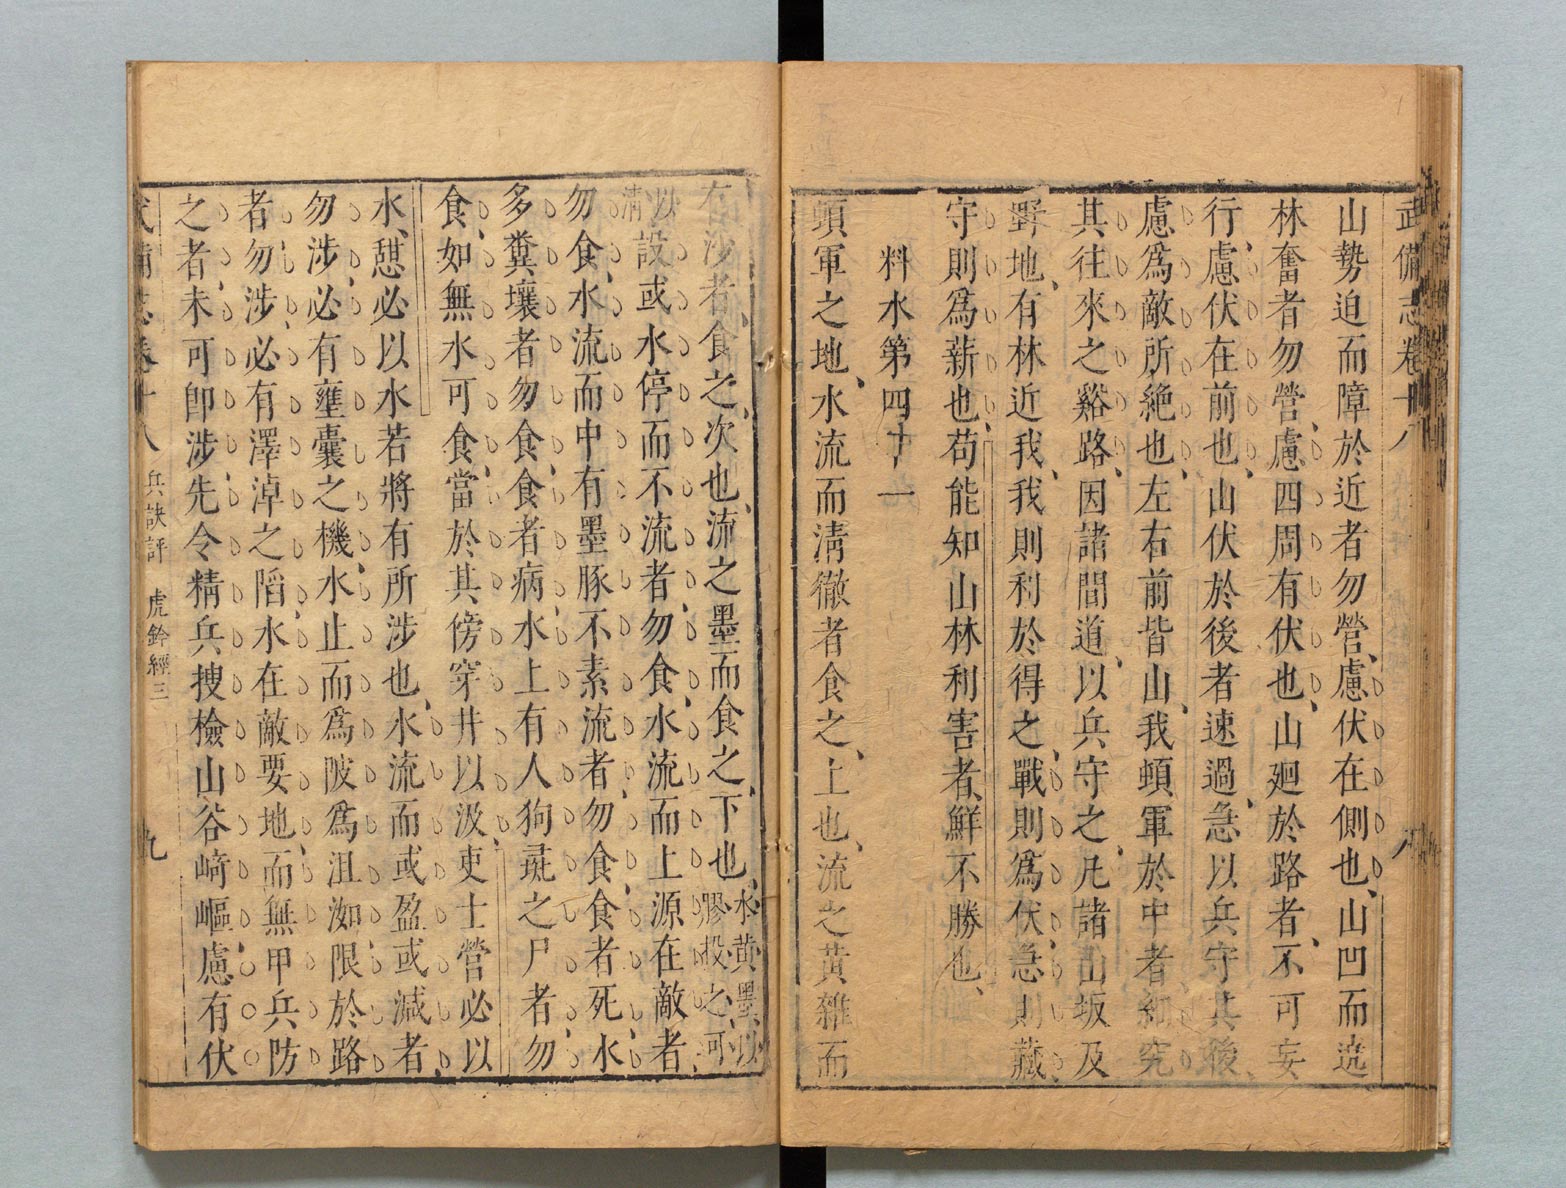 武備志卷十八
八
山勢迫而障於近者勿營慮伏在側也山凹而遶
林奮者勿營慮四周有伏也山廻於路者不可妄
行慮伏在前也山伏於後者速過急以兵守其後
慮爲敵所絶也左右前皆山我頓軍於中者細究
其往來之谿路因諸間道以兵守之凡諸山坂及
野地有林近我我則利於得之戰則爲伏急則藏
守則爲薪也苟能知山林利害者鮮不勝也
料水第四十一
頓軍之地水流而淸徹者食之上也流之黃雜而
有沙者食之次也流之墨而食之下也水黃墨以膠投之可以淸
設或水停而不流者勿食水流而上源在敵者
勿食水流而中有墨脉不素流者勿食食者死水
多糞壤者勿食食者病水上有人狗彘之尸者勿
食如無水可食當於其傍穿井以汲吏士營必以
水憇必以水若將有所涉也水流而或盈或減者
勿涉必有壅囊之機水止而爲陂爲沮洳限於路
者勿涉必有澤淖之陷水在敵要地而無甲兵防
之者未可卽涉先令精兵搜檢山谷崎嶇慮有伏
武備志卷十八 兵訣評 虎鈐經三
九